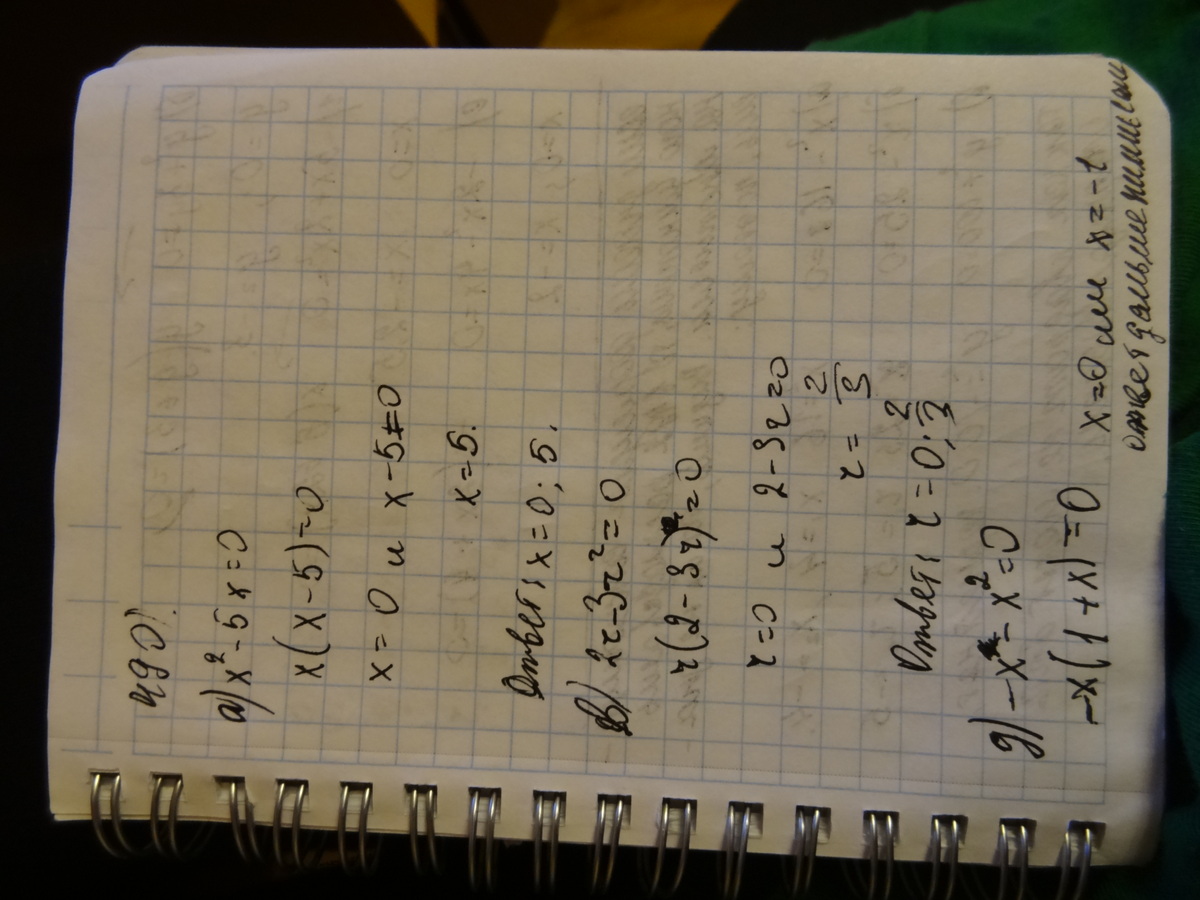 490).
а) x² - 5x = 0
x(x - 5) = 0
x = 0 и x - 5 = 0
x = 5.
Ответ: x = 0; 5.
в) 2z - 3z² = 0
z(2 - 3z) = 0
z = 0 и 2 - 3z = 0
z = 2/3
Ответ: z = 0; 2/3
д) -x - x² = 0
-x(1 + x) = 0
x = 0 или x = -1
ответ дальше